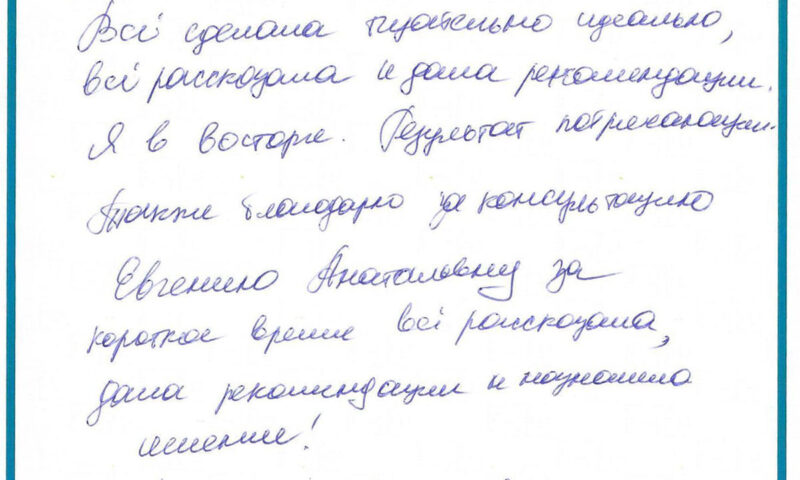 Всё сделала тщательно идеально,
всё рассказала и дала рекомендации.
Я в восторге. Результат потрясающий.
Также благодарю за консультацию
Евгению Анатольевну за
короткое время всё рассказала,
дала рекомендации и назначила
лечение!